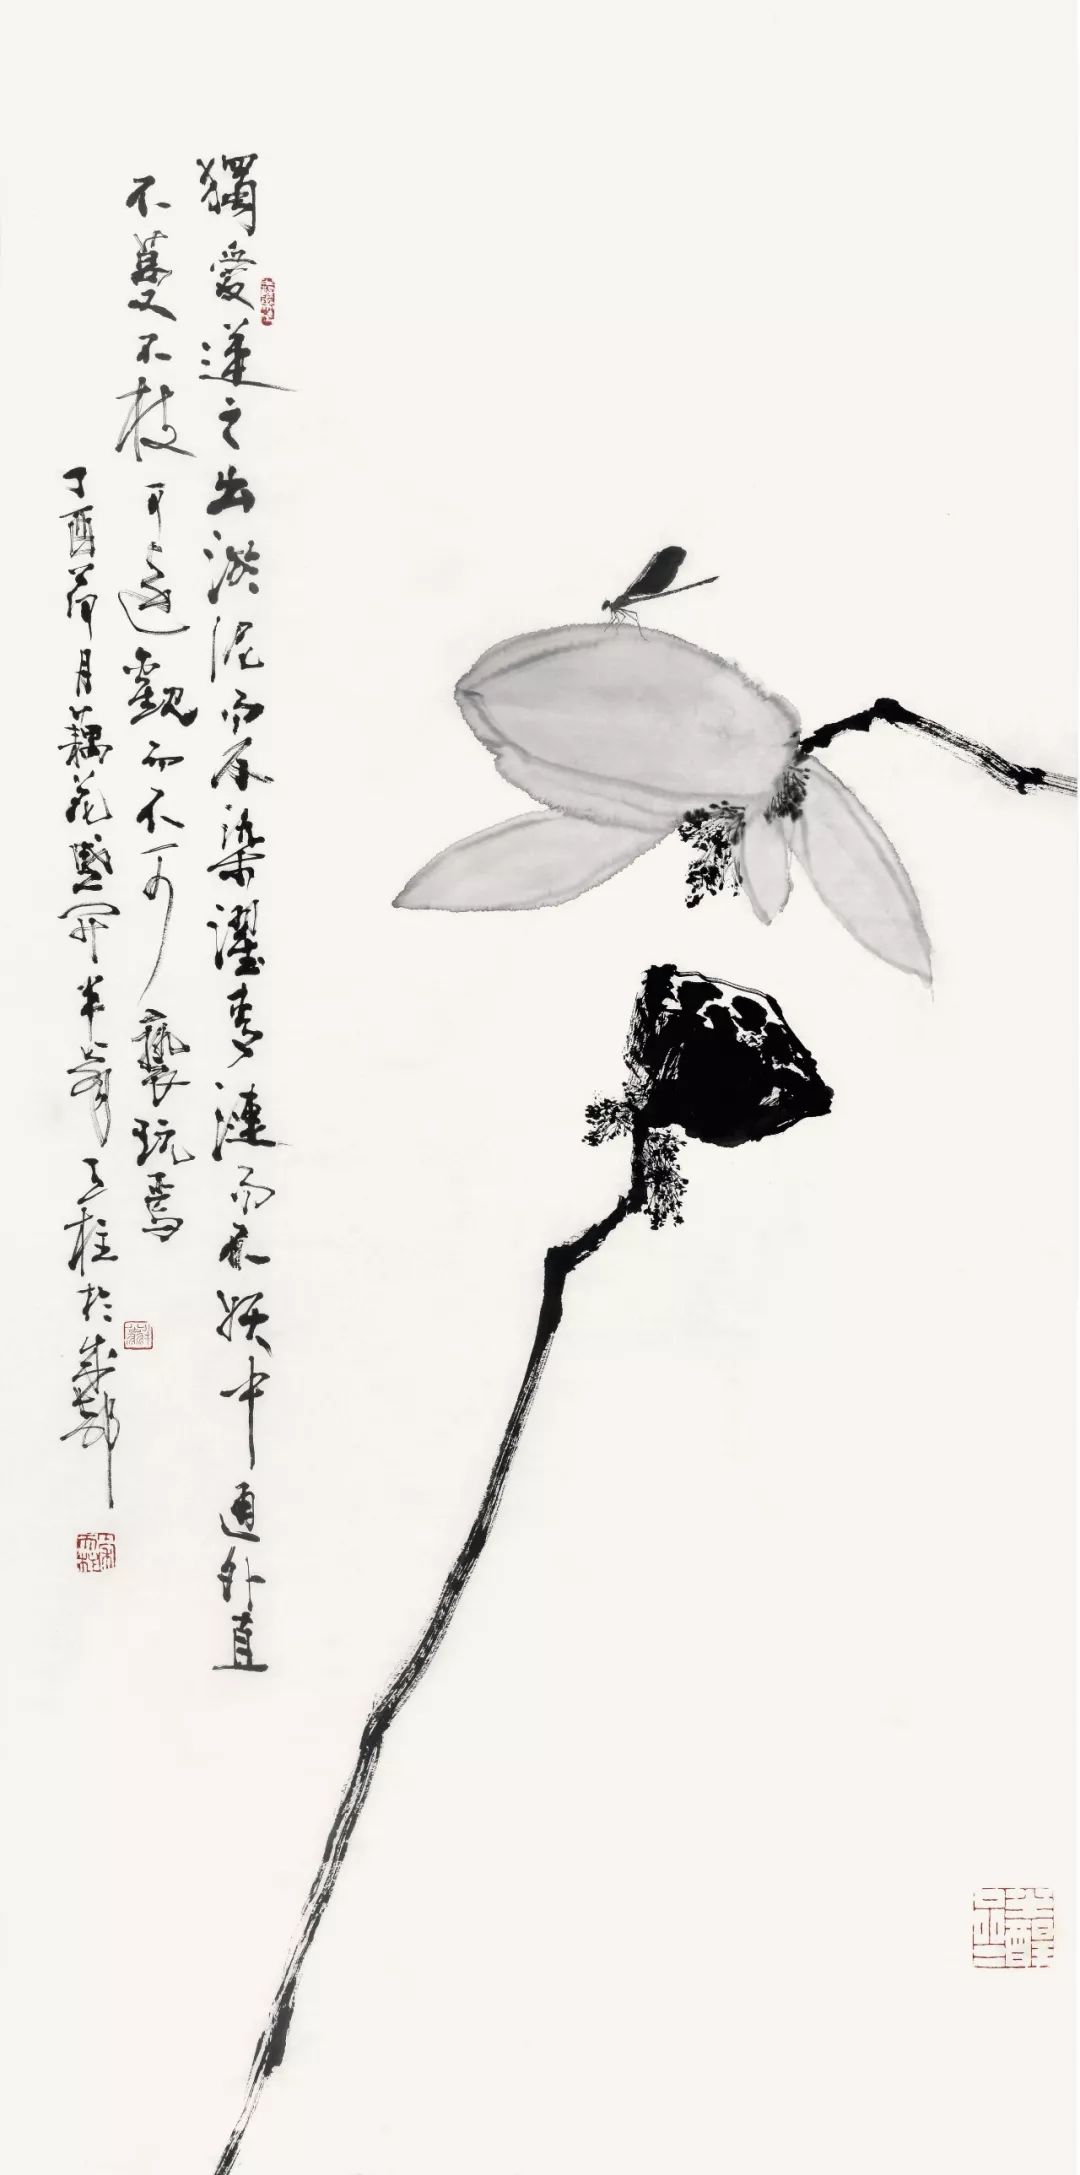 獨愛蓮之出淤泥而不染濯清漣而不妖中通外直
不蔓不枝可遠觀而不可褻玩焉
丁酉荷月藕花盛開半醉天柱於成都